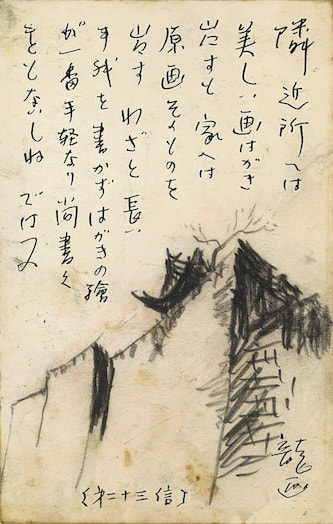 隣近所へは
美しい画はがき
出すも家へは
原画そのものを
出すわざと長い
手紙を書かずはがきの繪
が一番手軽なり尚書く
ことなしね では又
龍画
(第二十三信)